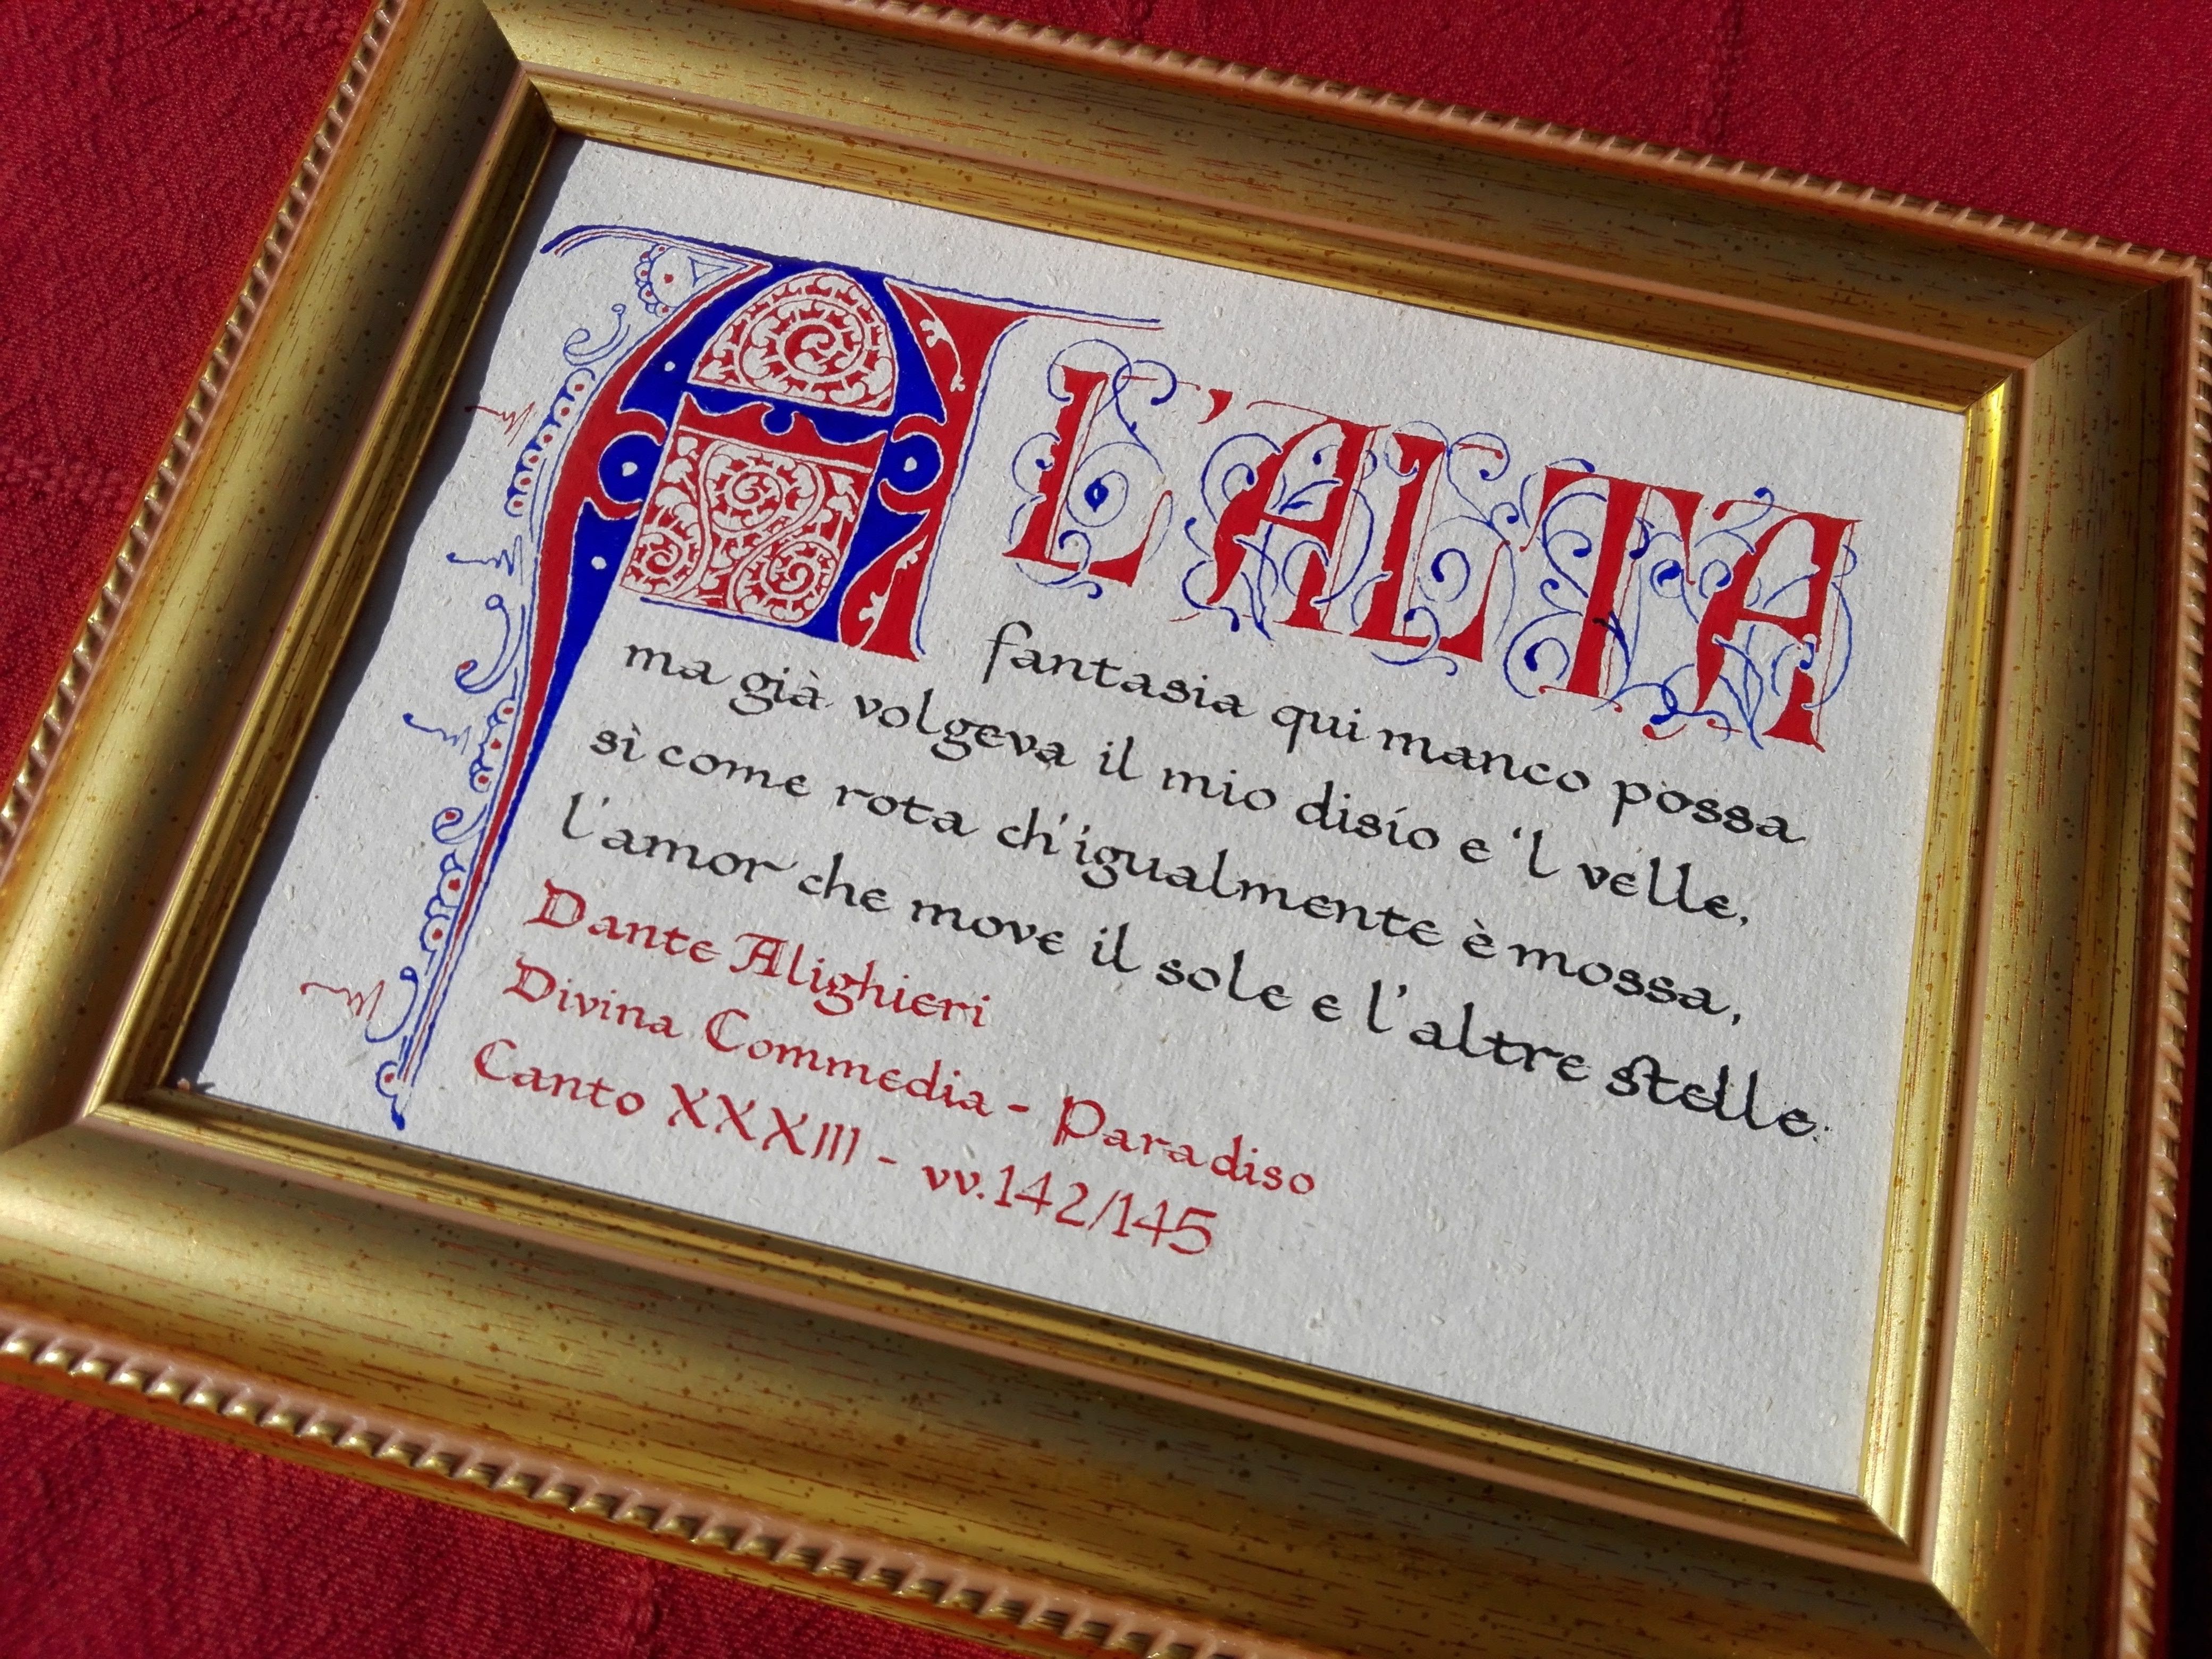 A L'ALTA
fantasia qui manco possa
ma già volgeva il mio disío e 'l velle,
sì come rota ch'igualmente è mossa,
l'amor che move il sole e l'altre stelle.
Dante Alighieri
Divina Commedia - Paradiso
Canto XXXIII - vv.142/145